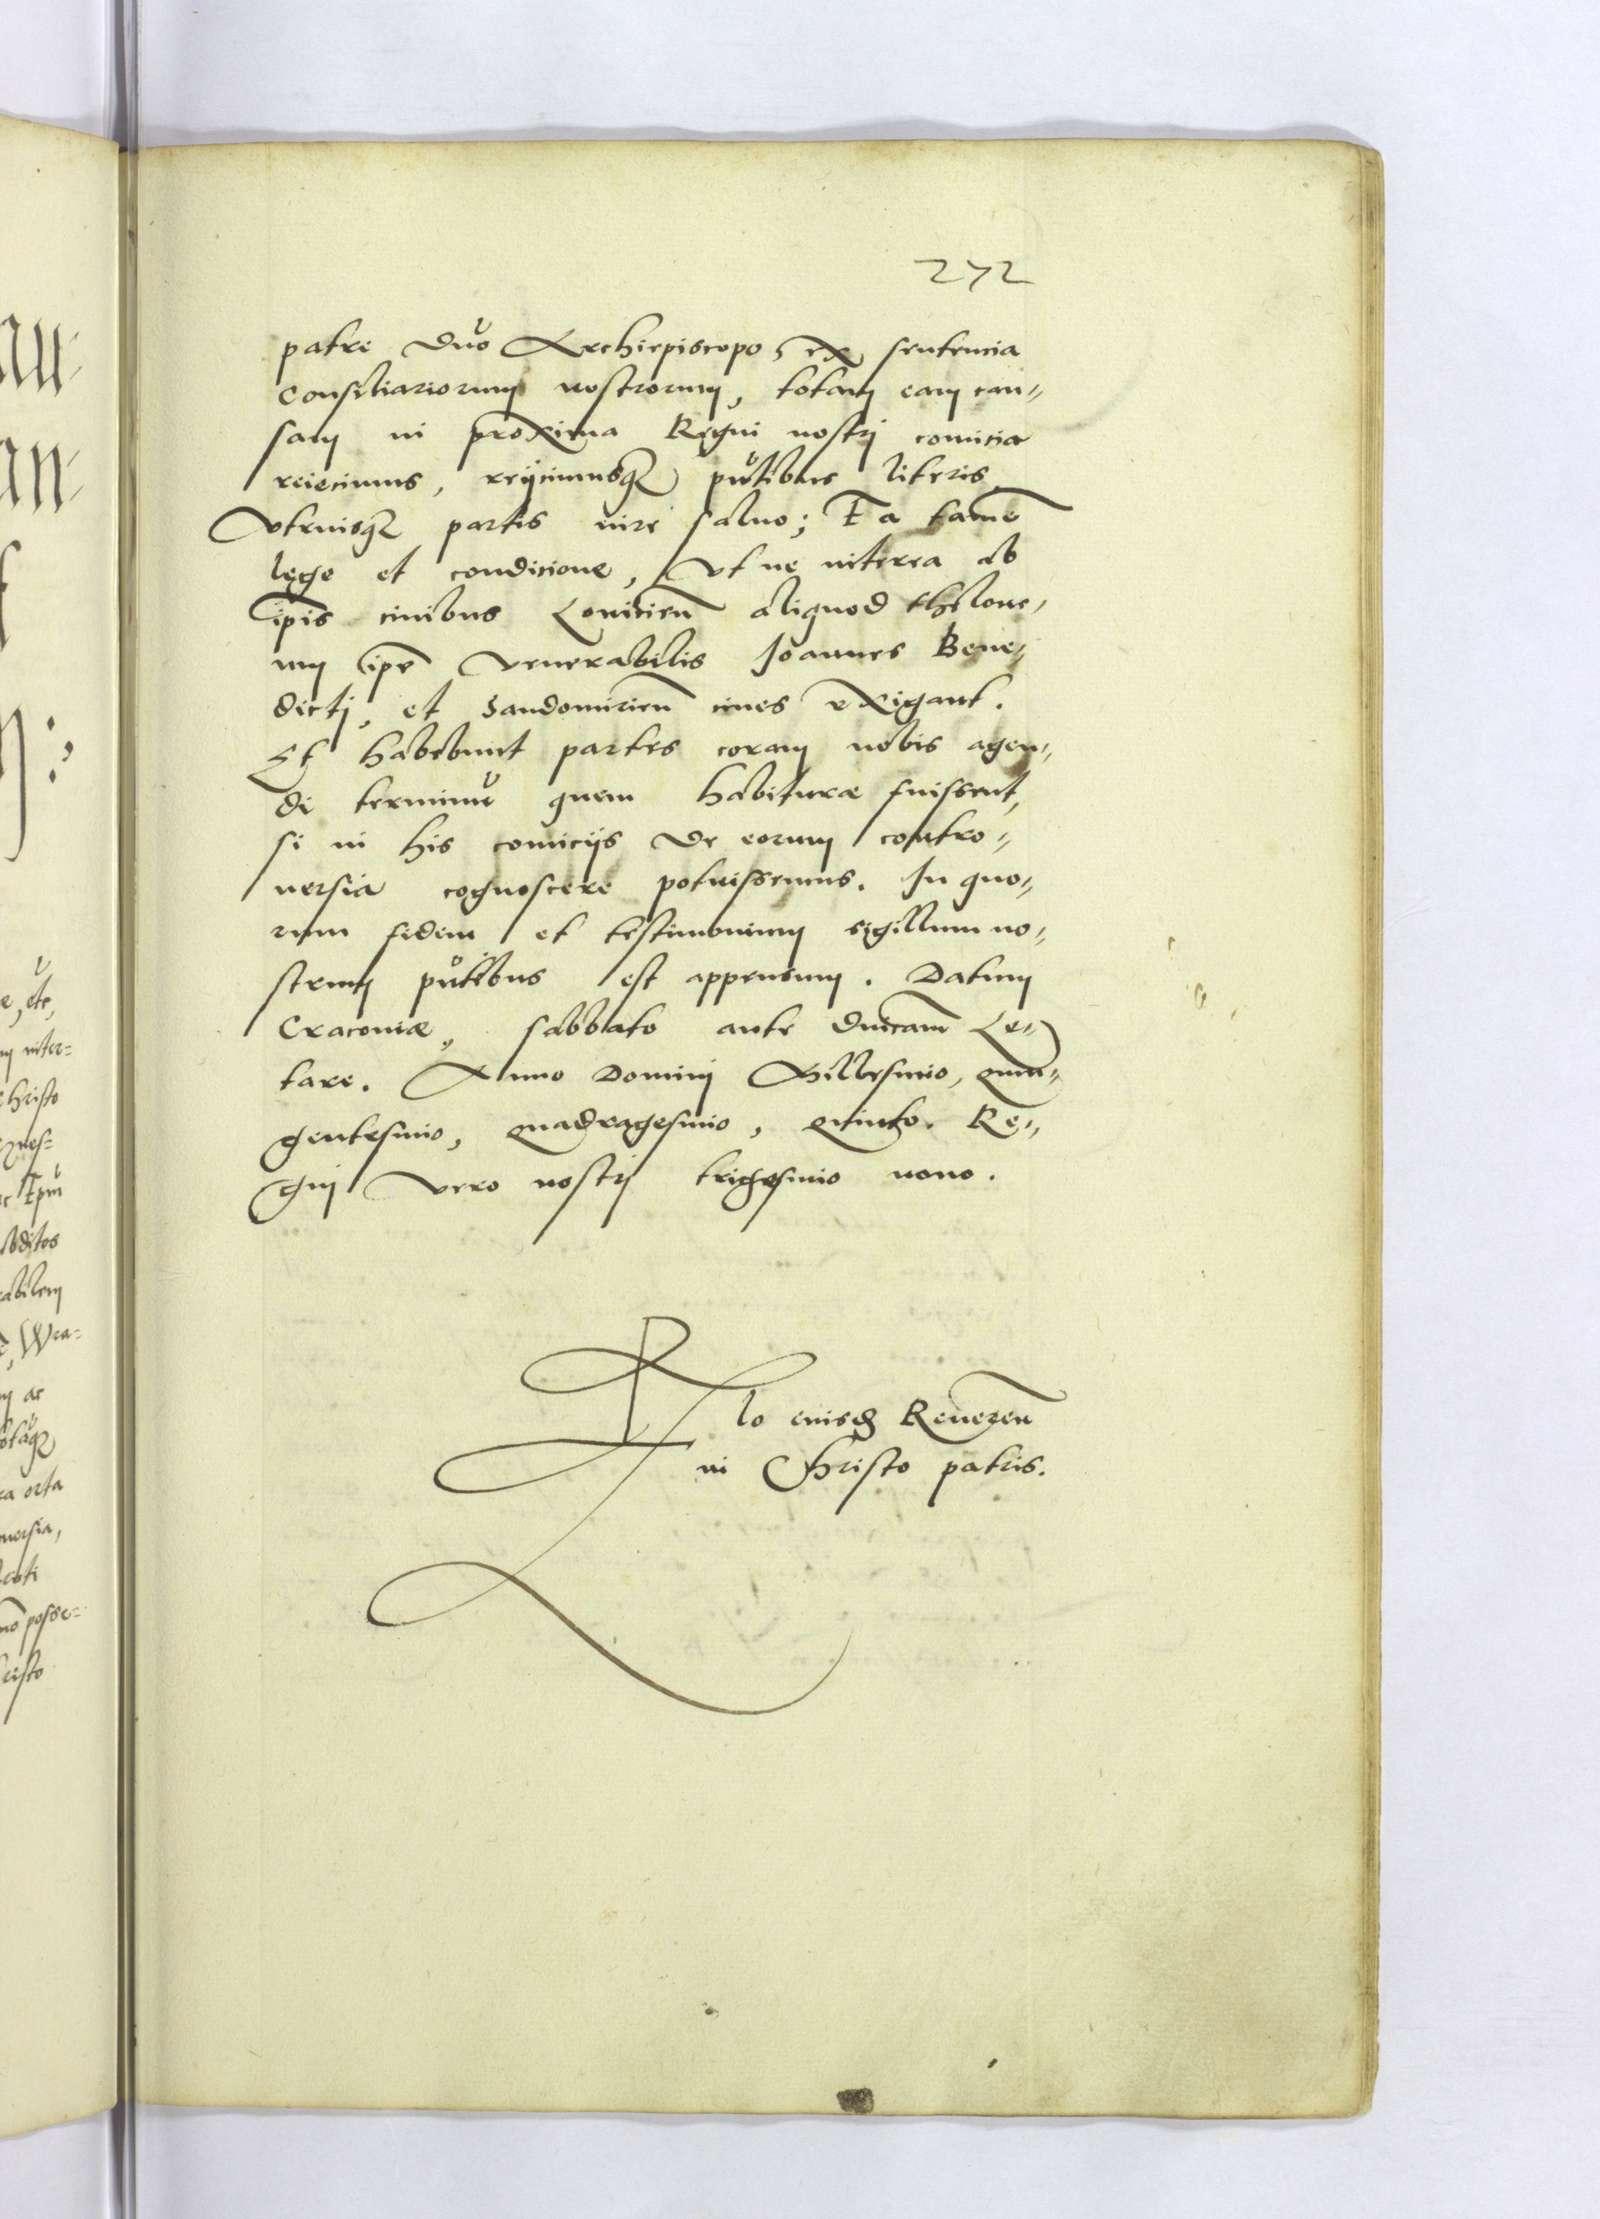 272
patre dno Archiepiscopo, ex sentencia
Consiliariorum nostrorum, totam eam cau-
sam in proxima Regni nostri comicia
reiecimus, reijcimusq3 pntibus literis
Vtriusq3 partis iure saluo; Ea tamē
lege et condicione, Vt ne interea ab
ipīs ciuibus Louicien̄ aliquod thelone-
um ipē Venerabilis Joannes Bene-
dictj, et Sandomirien̄ ciues exigant.
Et habebunt partes coram nobis agen-
di terminū quem habituræ fuissent,
si in his comicijs de eorum contro-
uersia cognoscere potuissemus. In quo-
rum fidem et testimonium sigillum no-
strum pntibus est appensum. Datum
Cracouiæ, sabbato ante dnicam Le-
tare. Anno Domini Millesimo, quin-
gentesimo, quadragesimo, quinto. Re-
gni vero nostrj trigesimo nono.
lo eiusd Reueren̄
in Christo patris.